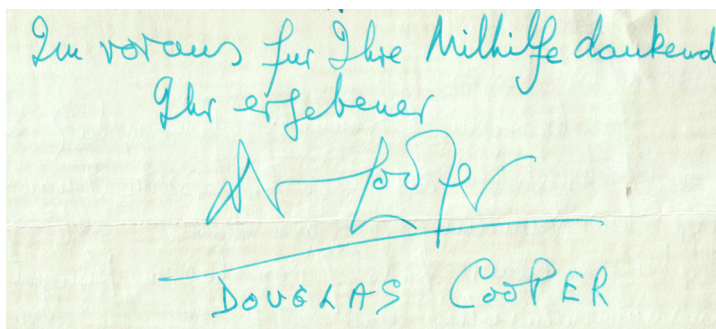 Im voraus für Ihre Mithilfe dankend
Ihr ergebener
Cooper
DOUGLAS COOPER